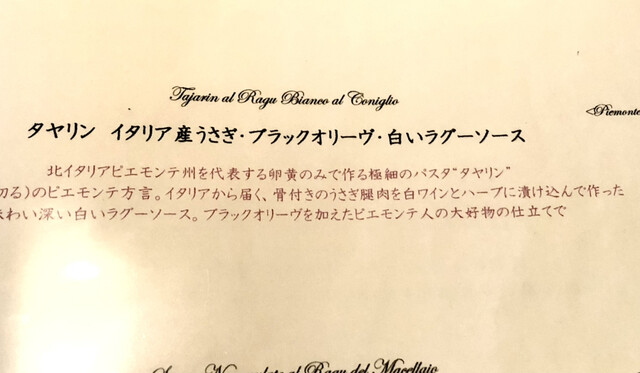 Tajarin al Ragu Bianco al Coniglio
<Piemonte
タヤリン イタリア産うさぎ・ブラックオリーヴ・白いラグーソース
北イタリアピエモンテ州を代表する卵黄のみで作る極細のパスタ"タヤリン"
切る)のピエモンテ方言。イタリアから届く、骨付きのうさぎ腿肉を白ワインとハーブに漬け込んで作った
味わい深い白いラグーソース。ブラックオリーヴを加えたピエモンテ人の大好物の仕立てで
al Ragu del Macellaio